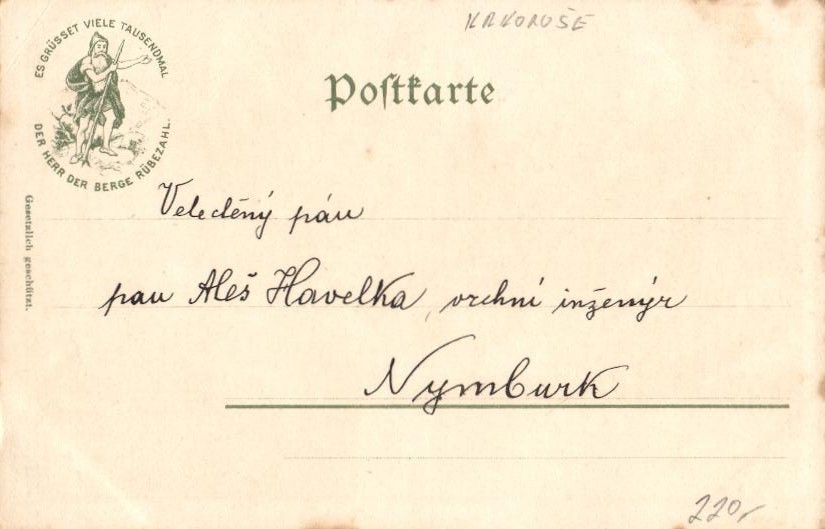 KRKONOŠE
ES GRÜSSET VIELE TAUSENDMAL
DER HERR DER BERGE RÜBEZAHL.
Postkarte
Gesetzlich geschützt.
Velectěný pán
pan Aleš Havelka, vrchní inženýr
Nymburk
220,-